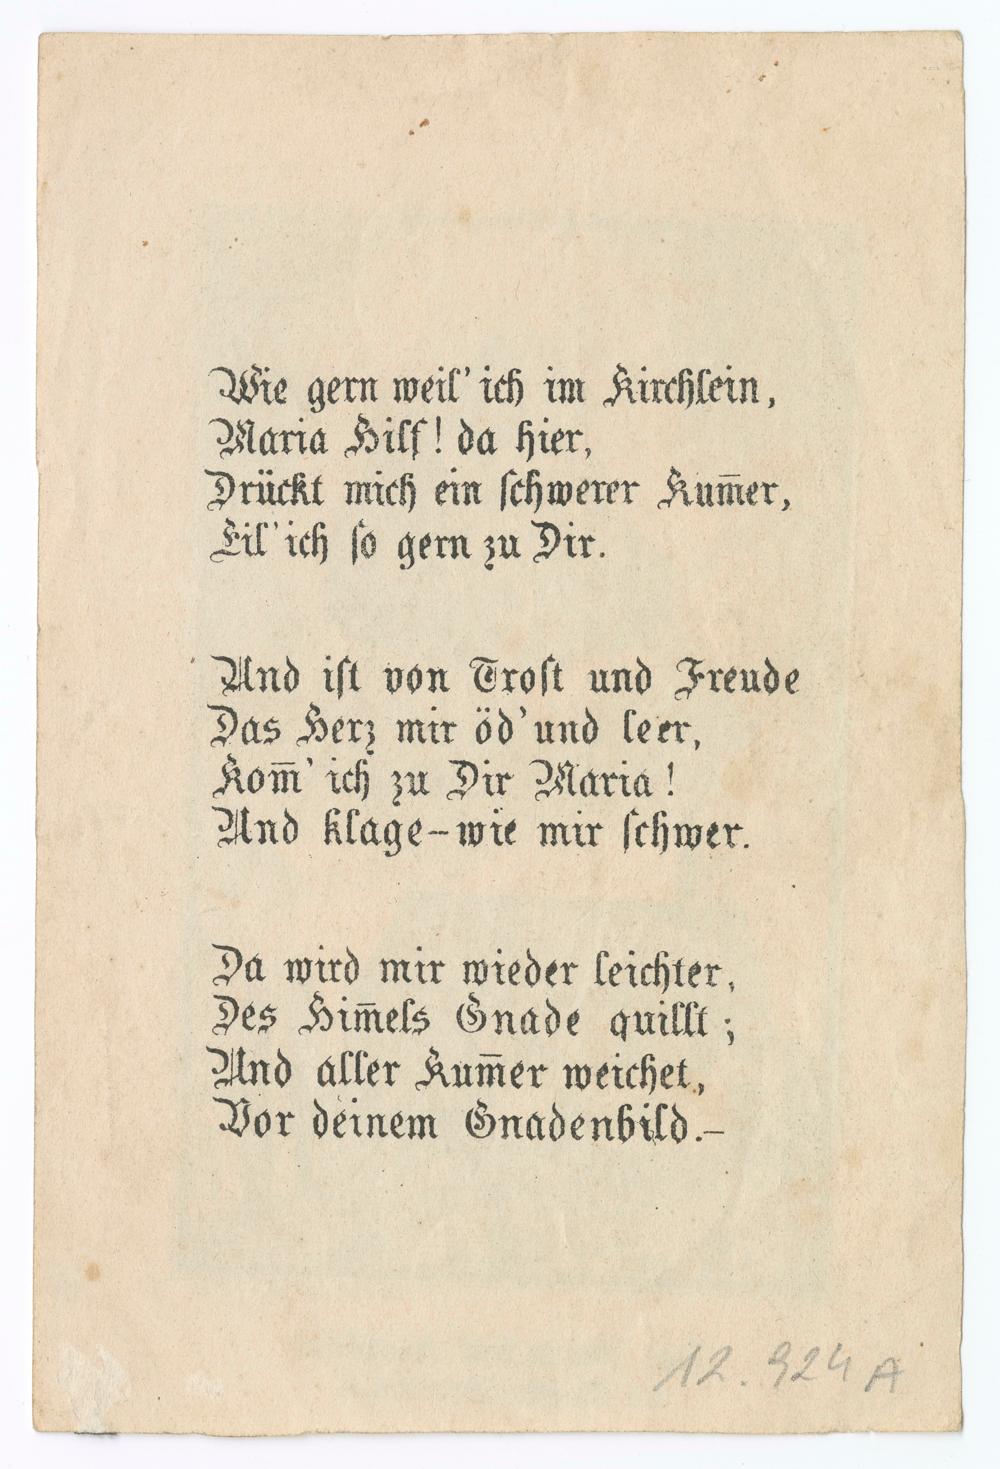 Wie gern weil' ich im Kirchlein,
Maria Hilf! da hier,
Drückt mich ein schwerer Kum̅er,
Eil' ich so gern zu Dir.
Und ist von Trost und Freude
Das Herz mir öd' und leer,
Kom̅' ich zu Dir Maria!
Und klage – wie mir schwer.
Da wird mir wieder leichter,
Des Him̅els Gnade quillt;
Und aller Kum̅er weichet,
Vor deinem Gnadenbild.–
12.924 A